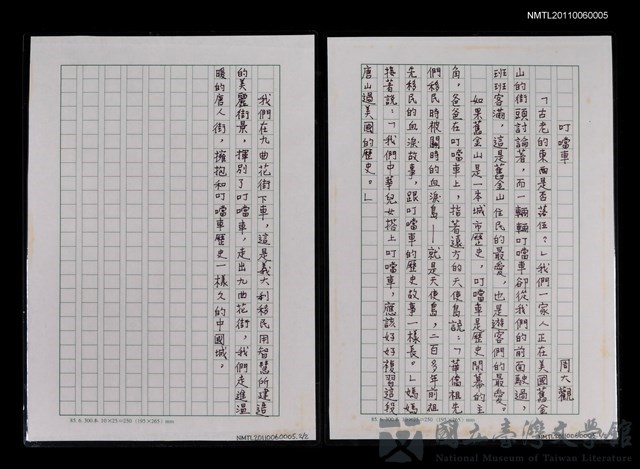 NMTL20110060005
叮噹車
周大觀
「古老的東西是否落伍？」我們一家人正在美國舊金
山的街頭討論著，而一輛輛叮噹車卻從我們的前面駛過，
班班客滿，這是舊金山住民的最愛，也是遊客們的最愛。
如果舊金山是一本城市歷史，叮噹車是歷史開幕的主
角，爸爸在叮噹車上，指著遠方的天使島說：「華僑祖先
們移民時被關時的血淚島—就是天使島，二百多年前祖
先移民的血淚故事，跟叮噹車的歷史故事一樣長。」媽媽
接著說：「我們中華兒女搭上叮噹車，應該好好複習這段
唐山過美國的歷史。」
85.6.300本 10×25=250 (193×265) mm
NMTL20110060005
我們在九曲花街下車，這是義大利移民用智慧所建造
的美麗街景，揮別了叮噹車，走出九曲花街，我們走進溫
暖的唐人街，擁抱和叮噹車歷史一樣久的中國城。
85.6.300本 10×25=250 (193×265) mm
NMTL20110060005.1/2
國立臺灣文學館
National Museum of Taiwan Literature